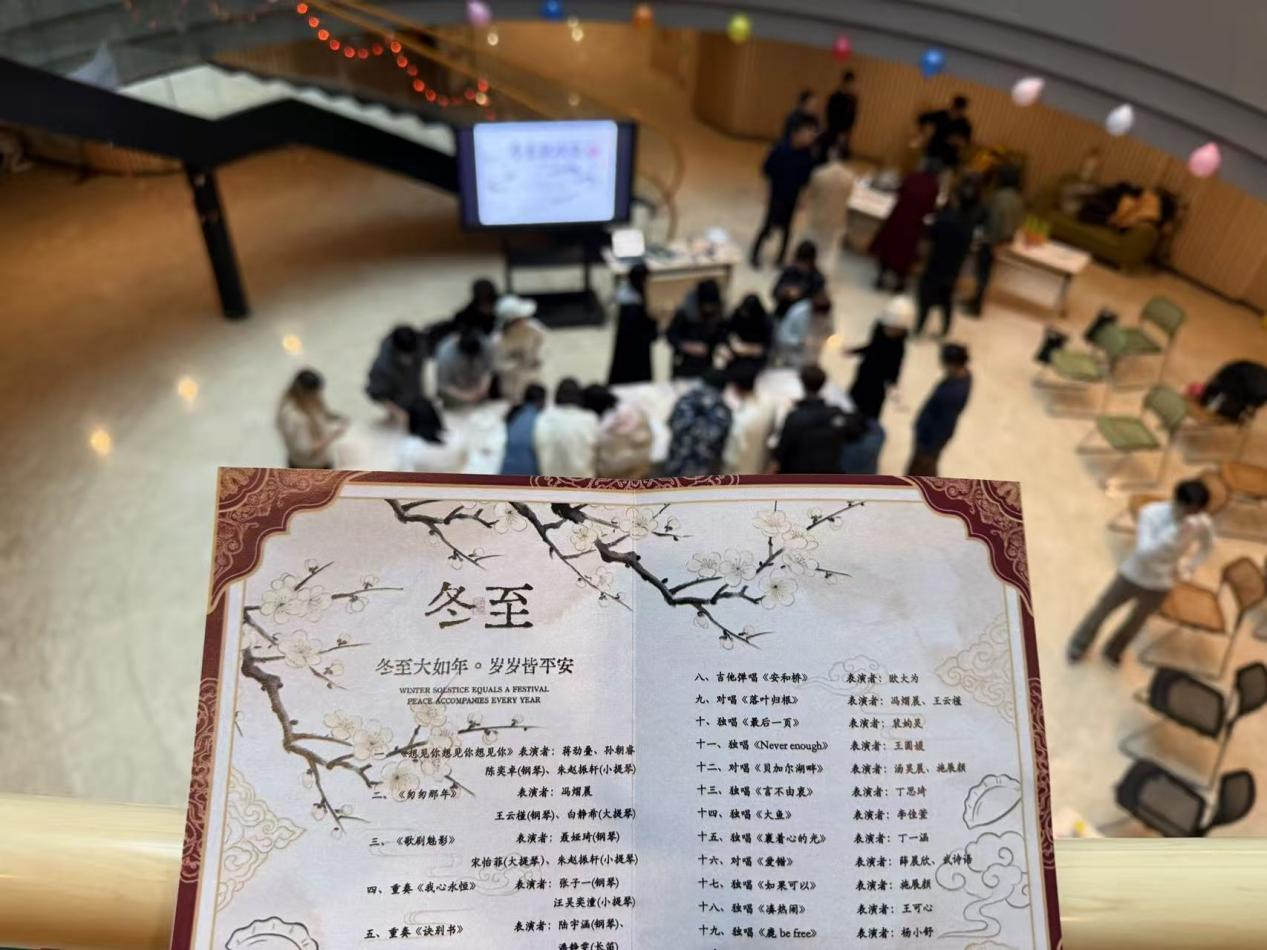 冬至
冬至大如年。岁岁皆平安
WINTER SOLSTICE EQUALS A FESTIVAL
PEACE ACCOMPANIES EVERY YEAR
《想见你想见你想见你》 表演者：蒋劲叠、孙朝睿
陈奕卓(钢琴)、朱赵振轩(小提琴)
二、《匆匆那年》 表演者：冯熠晨
王云槿(钢琴)、白静希(大提琴)
三、《歌剧魅影》 表演者：聂娅琦(钢琴)
宋怡菲(大提琴)、朱赵振轩(小提琴)
四、重奏《我心永恒》 表演者：张子一(钢琴)
汪昊奕潼(小提琴)
五、重奏《诀别书》 表演者：陆宇涵(钢琴)、
八、吉他弹唱《安和桥》 表演者：欧大为
九、对唱《落叶归根》 表演者：冯熠晨、王云槿
十、独唱《最后一页》 表演者：裴姁昊
十一、独唱《Never enough》 表演者：王圆媛
十二、对唱《贝加尔湖畔》 表演者：汤昊晨、施展颜
十三、独唱《言不由衷》 表演者：丁思琦
十四、独唱《大鱼》 表演者：李佳萱
十五、独唱《裹着心的光》 表演者：丁一涵
十六、对唱《爱错》 表演者：薛晨欣、武诗语
十七、独唱《如果可以》 表演者：施展颜
十八、独唱《凑热闹》 表演者：王可心
十九、独唱《鹿 be free》 表演者：杨小舒